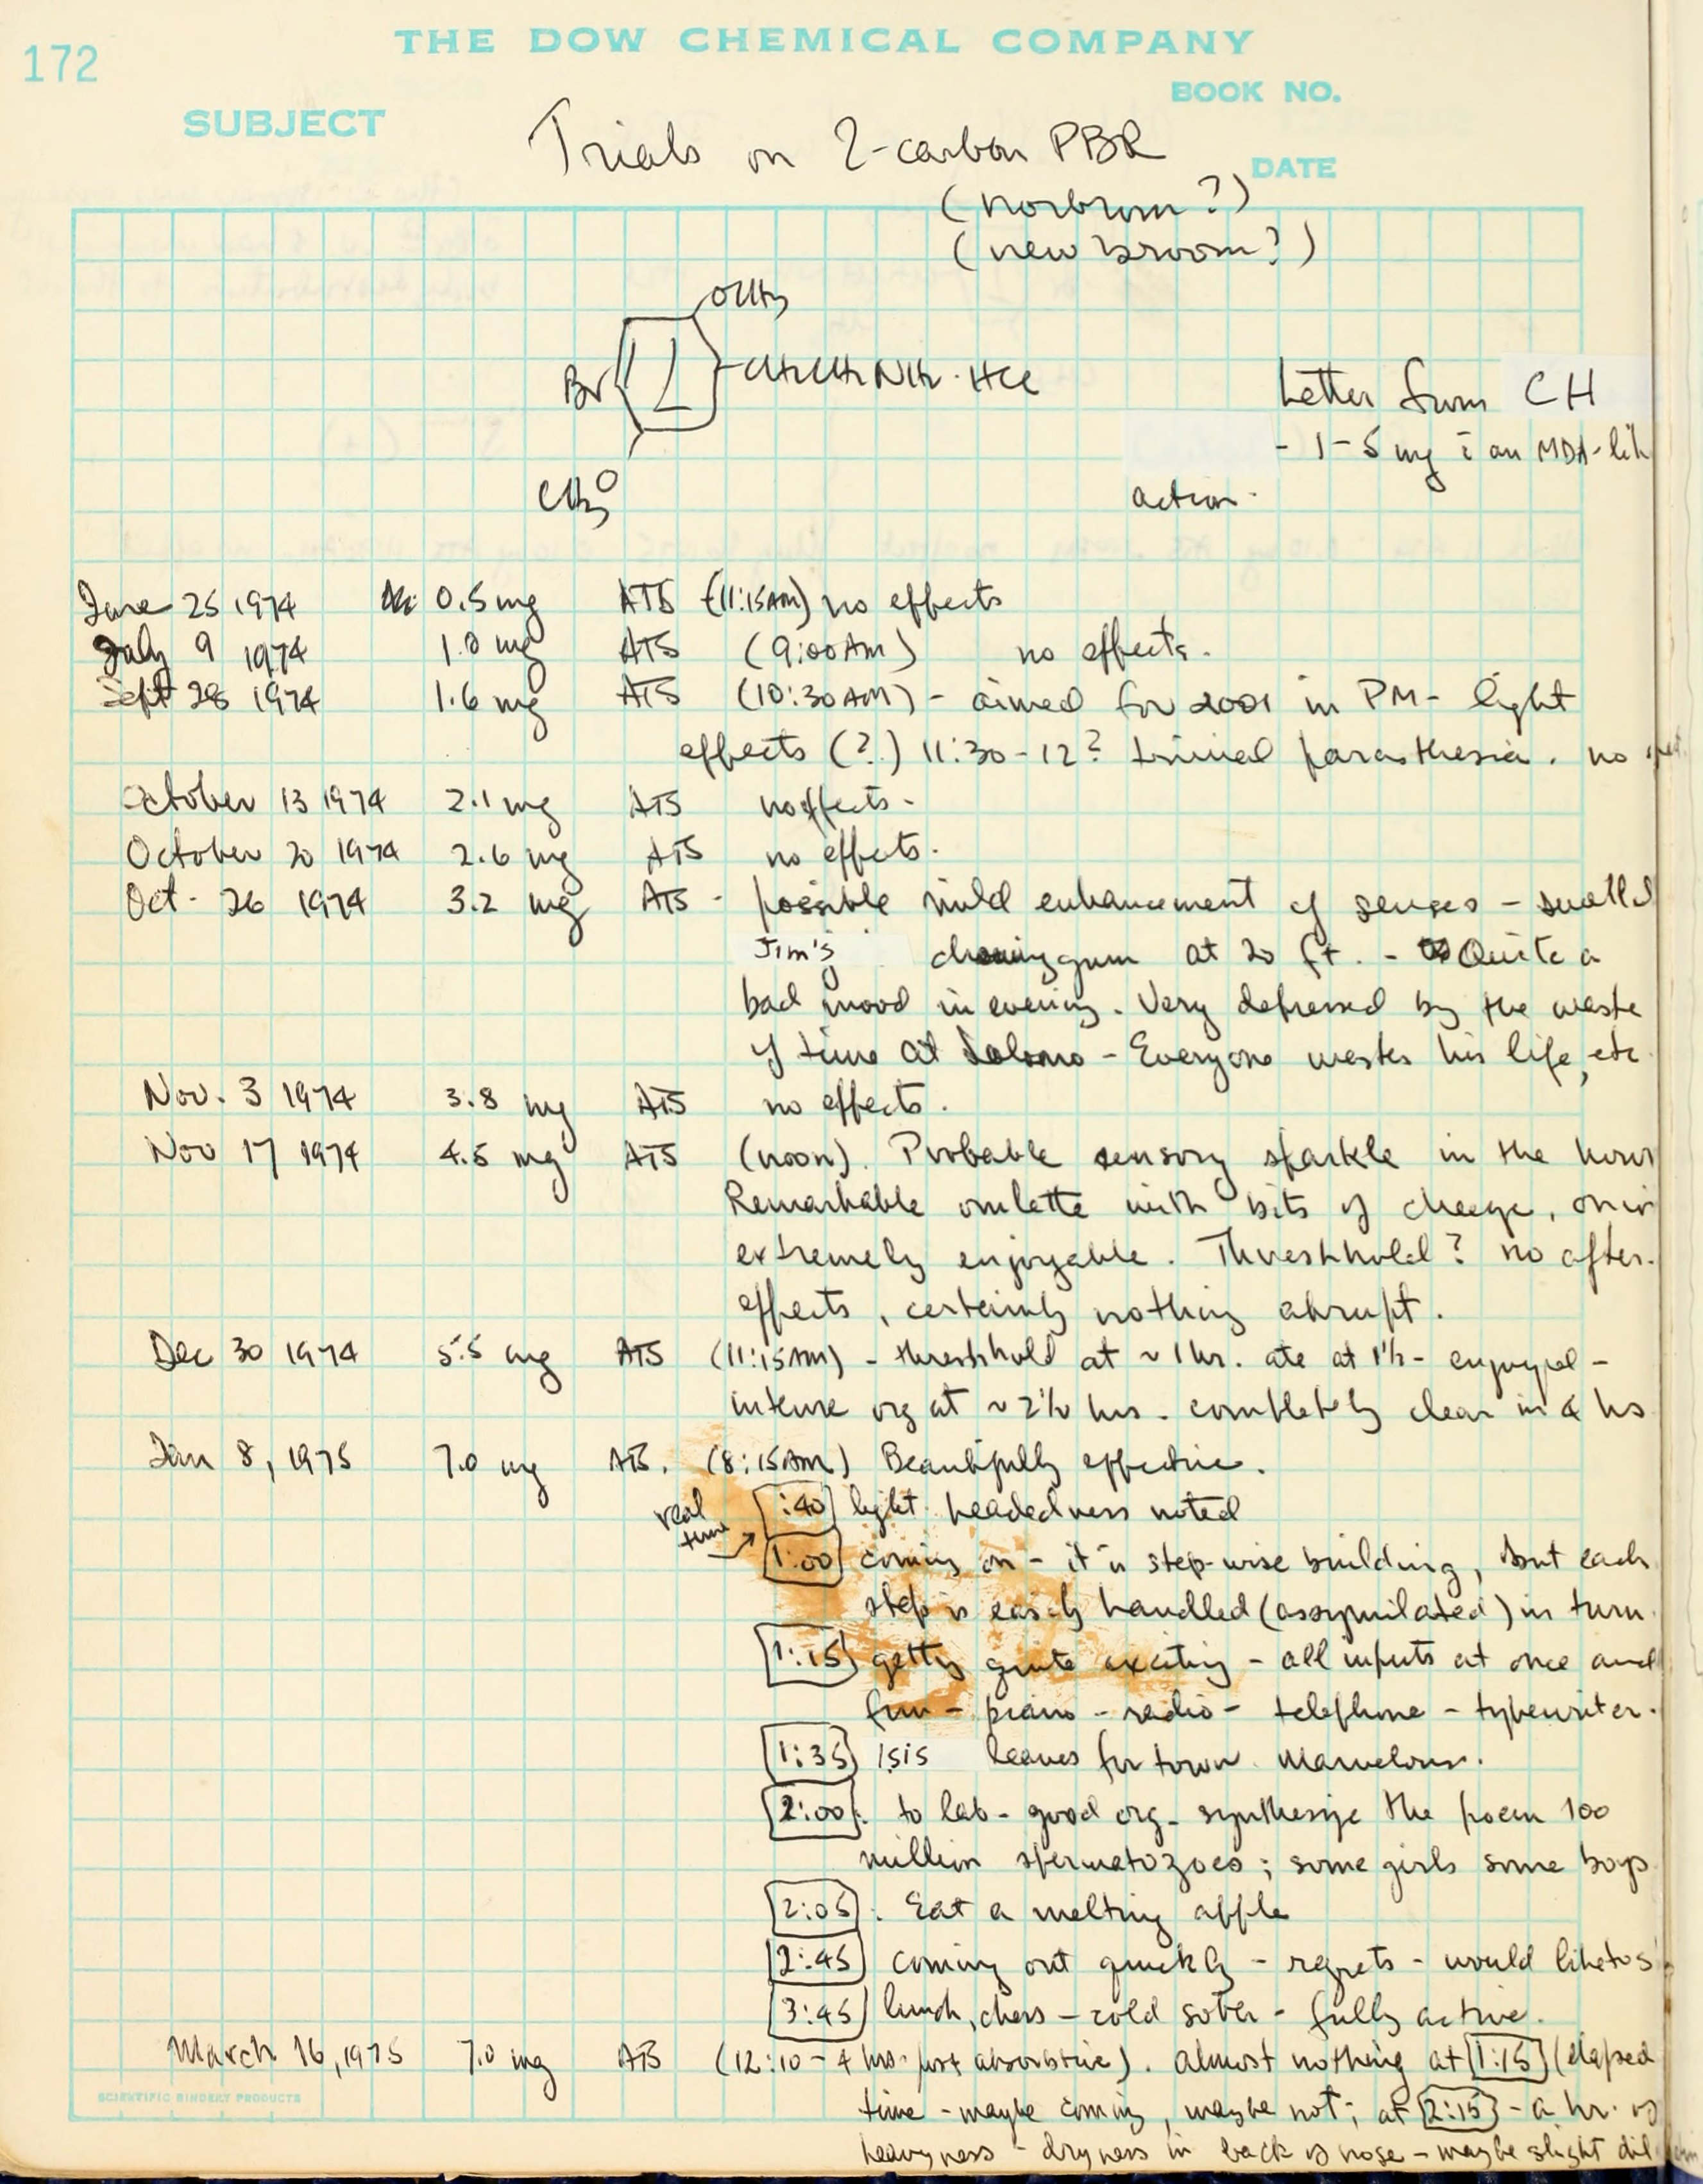 THE DOW CHEMICAL COMPANY
172
BOOK NO.
SUBJECT
Trials on 2-carbon PBR
DATE
(norbrom?)
(new broom?)
OCH3
Br CH2CH2NH2·HCl
CH3O
Letter from CH
- 1-5 mg c̄ an MDA-lik
action.
June 25 1974 0.5 mg ATS (11:15AM) no effects
July 9 1974 1.0 mg ATS (9:00AM) no effects.
Sept 28 1974 1.6 mg ATS (10:30AM) - aimed for 2001 in PM - light
effects (?) 11:30-12? trivial parasthesia. no
October 13 1974 2.1 mg ATS no effects -
October 20 1974 2.6 mg ATS no effects.
Oct. 26 1974 3.2 mg ATS - possible mild enhancement of senses - smelled
Jim's chewing gum at 20 ft. - Quite a
bad mood in evening. Very depressed by the waste
of time at - Everyone wastes his life, etc.
Nov. 3 1974 3.8 mg ATS no effects.
Nov 17 1974 4.5 mg ATS (noon). Probable sensory sparkle in the hour
Remarkable omlette with bits of cheese, onio
extremely enjoyable. Threshhold? no after-
effects, certainly nothing abrupt.
Dec 30 1974 5.5 mg ATS (11:15AM) - threshhold at ~ 1 hr. ate at 1½ - enjoyed -
intense org at ~ 2½ hrs. completely clear in 4 hrs
Jan 8, 1975 7.0 mg ATS. (8:15AM) Beautifully effective.
real time
:40 light headedness noted
1:00 coming on - it is step-wise building, but each
step is easily handled (assymilated) in turn.
1:15 getting quite exciting - all inputs at once and
fun - piano - radio - telephone - typewriter.
1:35 Isis leaves for town. Marvelous.
2:00: to lab - good org - synthesize the poem 100
million spermatozoes; some girls some boys
2:05: Eat a melting apple
2:45 coming out quickly - regrets - would like to s
3:45 lunch, chess - cold sober - fully active.
March 16, 1975 7.0 mg ATS (12:10 - 4 hrs. post absorbtive). almost nothing at 1:15 (elapsed
time - maybe coming, maybe not; at 2:15 - a hr. of
heavyness - dryness in back of nose - maybe slight dil
SCIENTIFIC BINDERY PRODUCTS